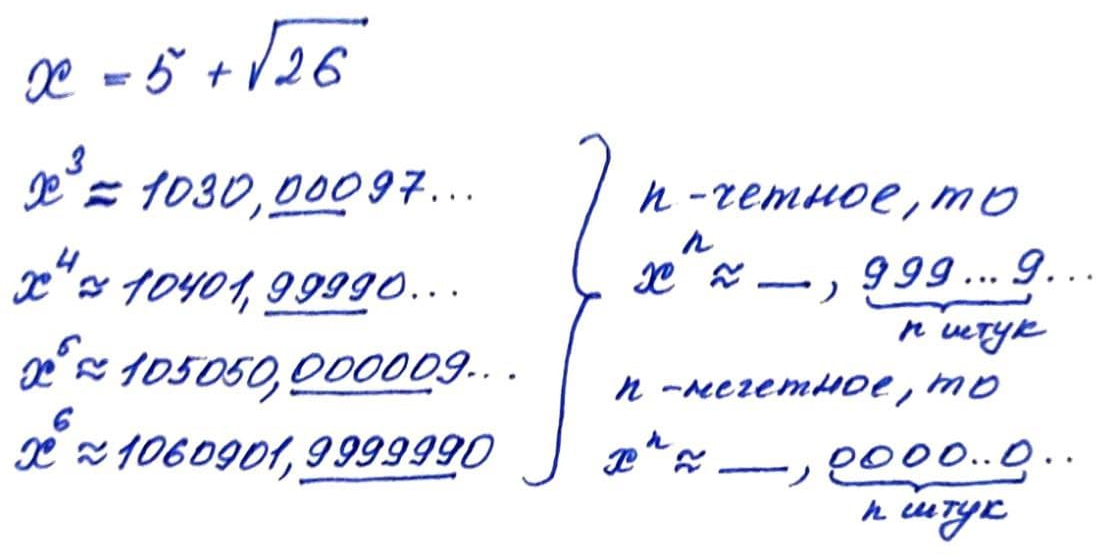 x = 5 + √26
x³ ≈ 1030,00097...
x⁴ ≈ 10401,99990...
x⁵ ≈ 105050,000009...
x⁶ ≈ 1060901,9999990
n - четное, то
xⁿ ≈ —, 999...9...
n штук
n - нечетное, то
xⁿ ≈ —, 0000..0..
n штук